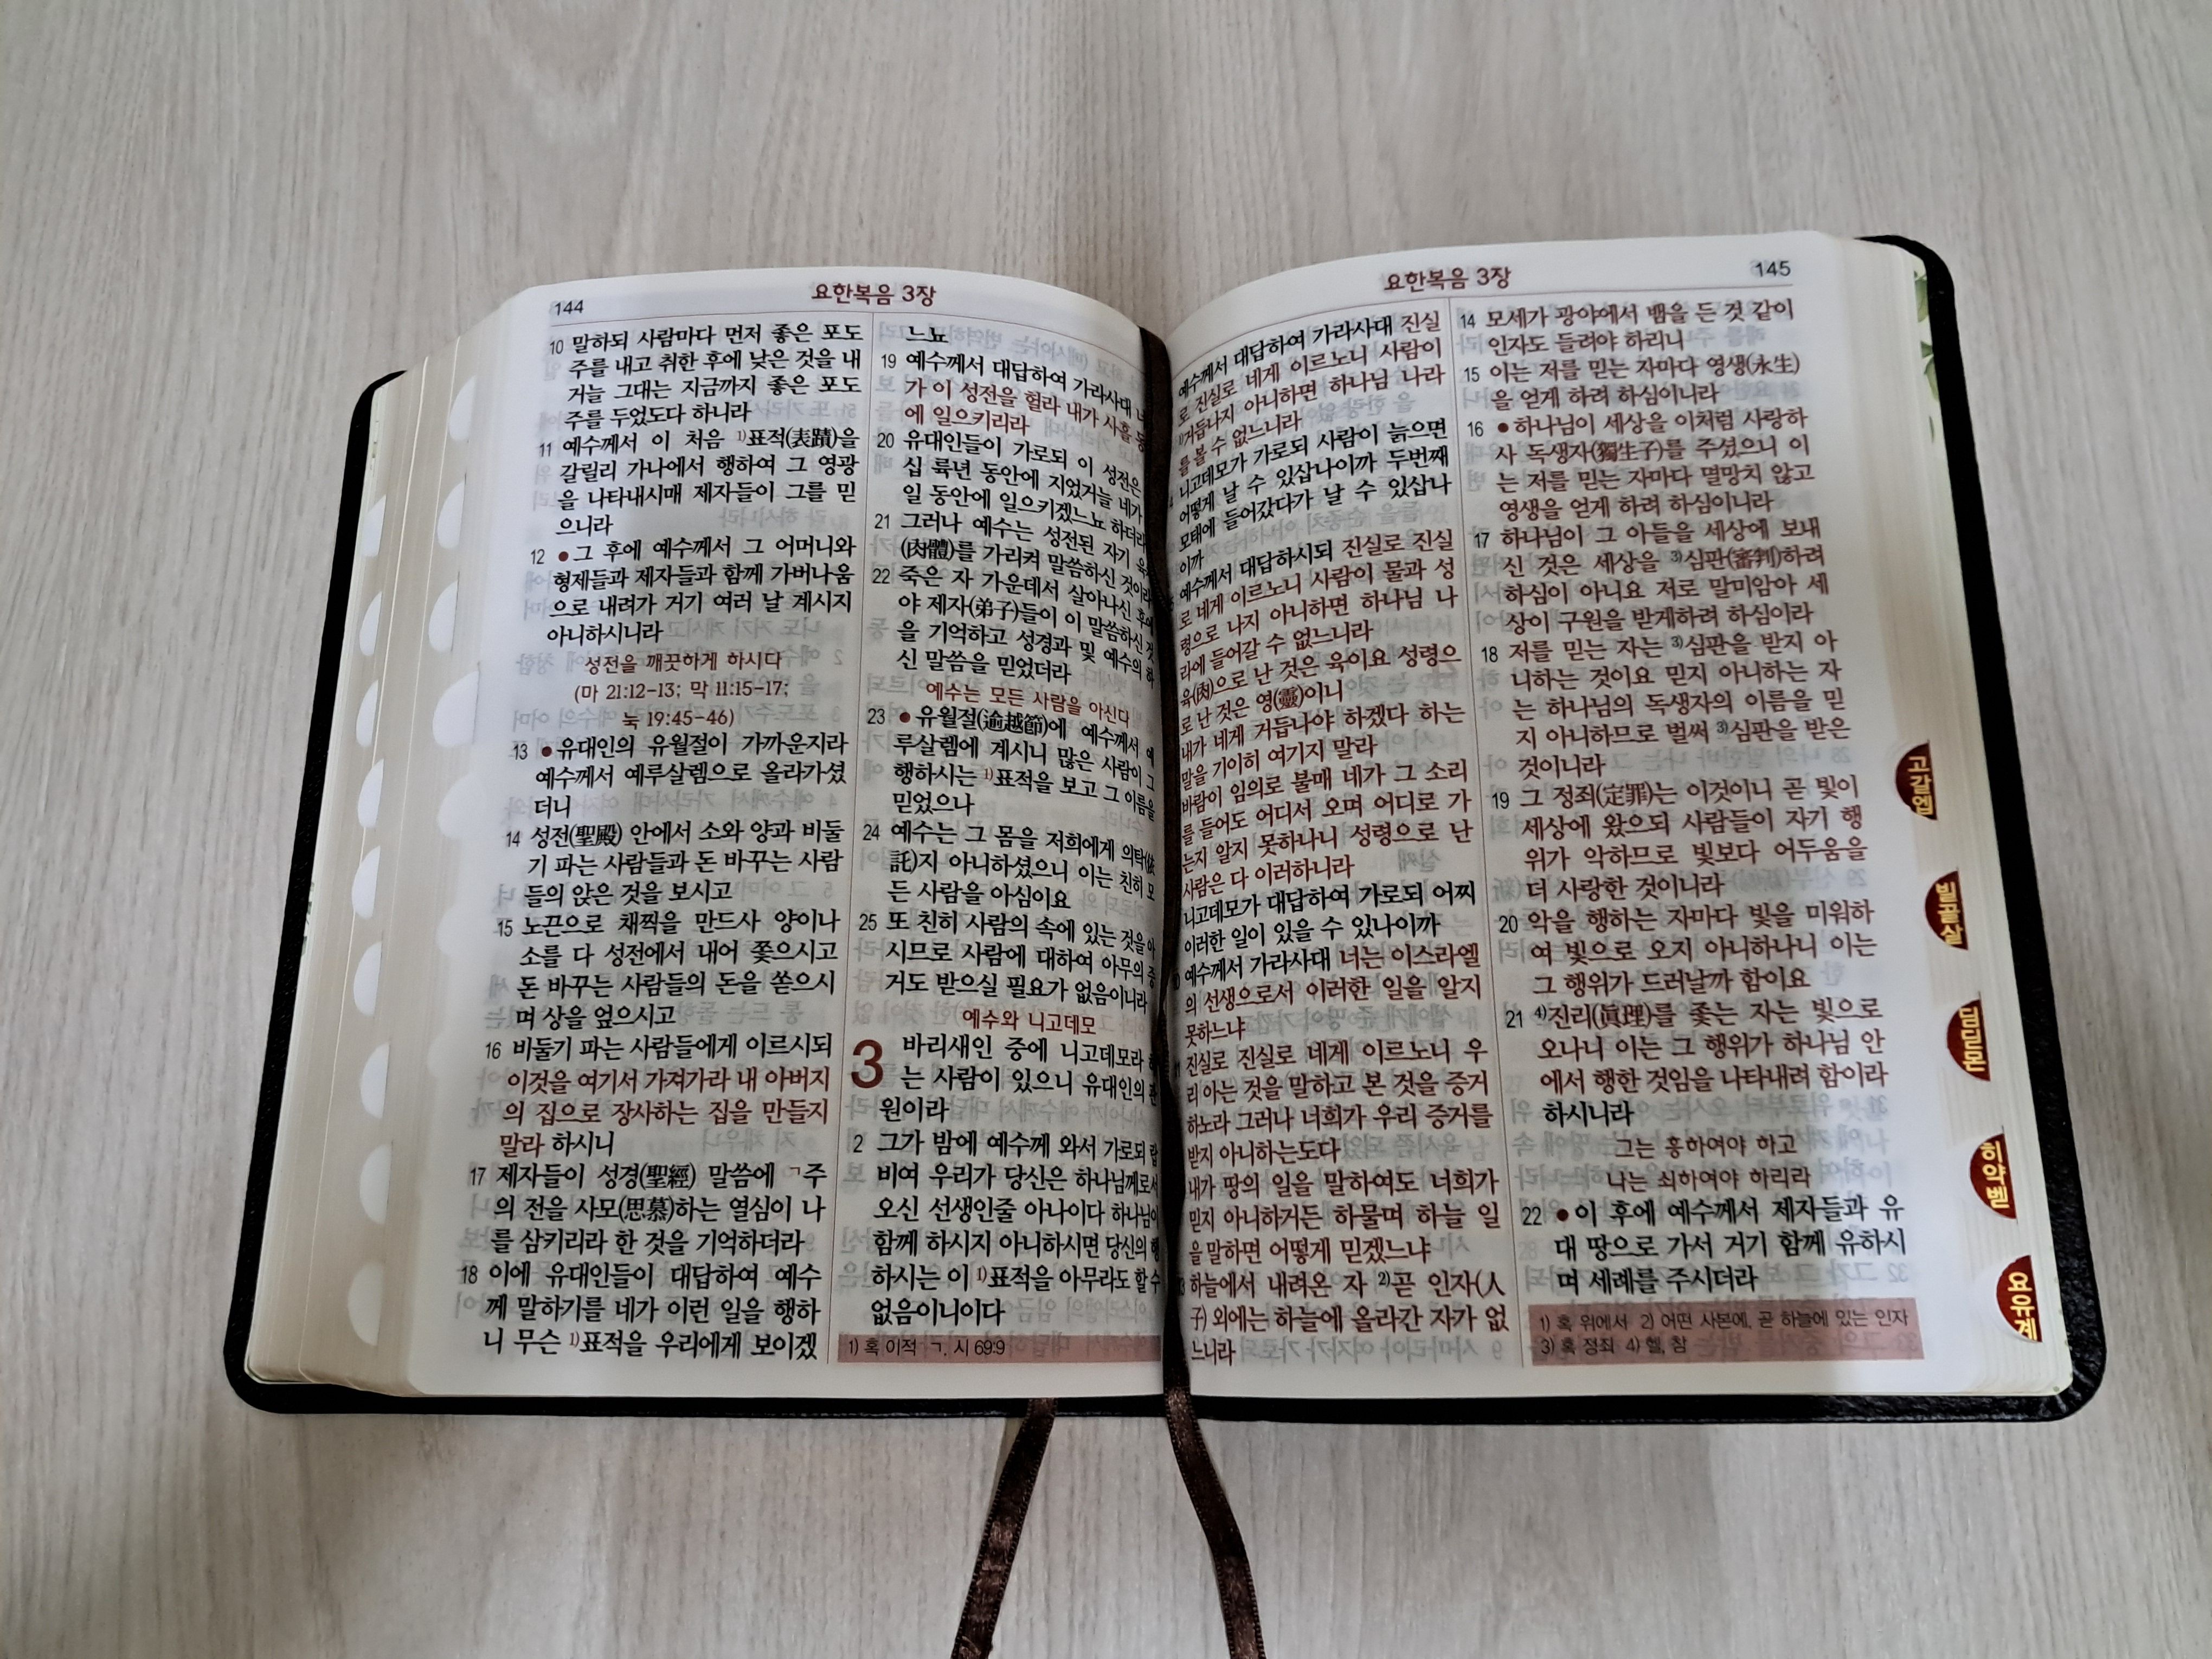 144
요한복음 3장
10 말하되 사람마다 먼저 좋은 포도
주를 내고 취한 후에 낮은 것을 내
거늘 그대는 지금까지 좋은 포도
주를 두었도다 하니라
11 예수께서 이 처음 1)표적(表蹟)을
갈릴리 가나에서 행하여 그 영광
을 나타내시매 제자들이 그를 믿
으니라
12 ●그 후에 예수께서 그 어머니와
형제들과 제자들과 함께 가버나움
으로 내려가 거기 여러 날 계시지
아니하시니라
성전을 깨끗하게 하시다
(마 21:12-13; 막 11:15-17;
눅 19:45-46)
13 ●유대인의 유월절이 가까운지라
예수께서 예루살렘으로 올라가셨
더니
14 성전(聖殿) 안에서 소와 양과 비둘
기 파는 사람들과 돈 바꾸는 사람
들의 앉은 것을 보시고
15 노끈으로 채찍을 만드사 양이나
소를 다 성전에서 내어 쫓으시고
돈 바꾸는 사람들의 돈을 쏟으시
며 상을 엎으시고
16 비둘기 파는 사람들에게 이르시되
이것을 여기서 가져가라 내 아버지
의 집으로 장사하는 집을 만들지
말라 하시니
17 제자들이 성경(聖經) 말씀에 ㄱ주
의 전을 사모(思慕)하는 열심이 나
를 삼키리라 한 것을 기억하더라
18 이에 유대인들이 대답하여 예수
께 말하기를 네가 이런 일을 행하
니 무슨 1)표적을 우리에게 보이겠
느뇨
19 예수께서 대답하여 가라사대
가 이 성전을 헐라 내가 사흘
에 일으키리라
20 유대인들이 가로되 이 성전은
십 륙년 동안에 지었거늘 네가
일 동안에 일으키겠느뇨 하더라
21 그러나 예수는 성전된 자기
(肉體)를 가리켜 말씀하신 것이라
22 죽은 자 가운데서 살아나신 후에
야 제자(弟子)들이 이 말씀하신 것
을 기억하고 성경과 및 예수의 하
신 말씀을 믿었더라
예수는 모든 사람을 아신다
23 ●유월절(逾越節)에 예수께서 예
루살렘에 계시니 많은 사람이 그
행하시는 1)표적을 보고 그 이름을
믿었으나
24 예수는 그 몸을 저희에게 의탁(依
託)지 아니하셨으니 이는 친히 모
든 사람을 아심이요
25 또 친히 사람의 속에 있는 것을 아
시므로 사람에 대하여 아무의 증
거도 받으실 필요가 없음이니라
예수와 니고데모
3 바리새인 중에 니고데모라
는 사람이 있으니 유대인의 관
원이라
2 그가 밤에 예수께 와서 가로되 랍
비여 우리가 당신은 하나님께로서
오신 선생인줄 아나이다 하나님이
함께 하시지 아니하시면 당신의 행
하시는 이 1)표적을 아무라도 할 수
없음이니이다
1) 혹 이적 ㄱ. 시 69:9
요한복음 3장
145
예수께서 대답하여 가라사대 진실
로 진실로 네게 이르노니 사람이
거듭나지 아니하면 하나님 나라
를 볼 수 없느니라
니고데모가 가로되 사람이 늙으면
어떻게 날 수 있삽나이까 두번째
모태에 들어갔다가 날 수 있삽나
이까
예수께서 대답하시되 진실로 진실
로 네게 이르노니 사람이 물과 성
령으로 나지 아니하면 하나님 나
라에 들어갈 수 없느니라
육(肉)으로 난 것은 육이요 성령으
로 난 것은 영(靈)이니
내가 네게 거듭나야 하겠다 하는
말을 기이히 여기지 말라
바람이 임의로 불매 네가 그 소리
를 들어도 어디서 오며 어디로 가
는지 알지 못하나니 성령으로 난
사람은 다 이러하니라
니고데모가 대답하여 가로되 어찌
이러한 일이 있을 수 있나이까
예수께서 가라사대 너는 이스라엘
의 선생으로서 이러한 일을 알지
못하느냐
진실로 진실로 네게 이르노니 우
리 아는 것을 말하고 본 것을 증거
하노라 그러나 너희가 우리 증거를
받지 아니하는도다
내가 땅의 일을 말하여도 너희가
믿지 아니하거든 하물며 하늘 일
을 말하면 어떻게 믿겠느냐
하늘에서 내려온 자 2)곧 인자(人
子) 외에는 하늘에 올라간 자가 없
느니라
14 모세가 광야에서 뱀을 든 것 같이
인자도 들려야 하리니
15 이는 저를 믿는 자마다 영생(永生)
을 얻게 하려 하심이니라
16 ●하나님이 세상을 이처럼 사랑하
사 독생자(獨生子)를 주셨으니 이
는 저를 믿는 자마다 멸망치 않고
영생을 얻게 하려 하심이니라
17 하나님이 그 아들을 세상에 보내
신 것은 세상을 3)심판(審判)하려
하심이 아니요 저로 말미암아 세
상이 구원을 받게하려 하심이라
18 저를 믿는 자는 3)심판을 받지 아
니하는 것이요 믿지 아니하는 자
는 하나님의 독생자의 이름을 믿
지 아니하므로 벌써 3)심판을 받은
것이니라
19 그 정죄(定罪)는 이것이니 곧 빛이
세상에 왔으되 사람들이 자기 행
위가 악하므로 빛보다 어두움을
더 사랑한 것이니라
20 악을 행하는 자마다 빛을 미워하
여 빛으로 오지 아니하나니 이는
그 행위가 드러날까 함이요
21 4)진리(眞理)를 좇는 자는 빛으로
오나니 이는 그 행위가 하나님 안
에서 행한 것임을 나타내려 함이라
하시니라
그는 흥하여야 하고
나는 쇠하여야 하리라
22 ●이 후에 예수께서 제자들과 유
대 땅으로 가서 거기 함께 유하시
며 세례를 주시더라
1) 혹 위에서 2) 어떤 사본에, 곧 하늘에 있는 인자
3) 혹 정죄 4) 헬, 참
고갈엡
빌골살
딤딛몬
히약벧
요유계